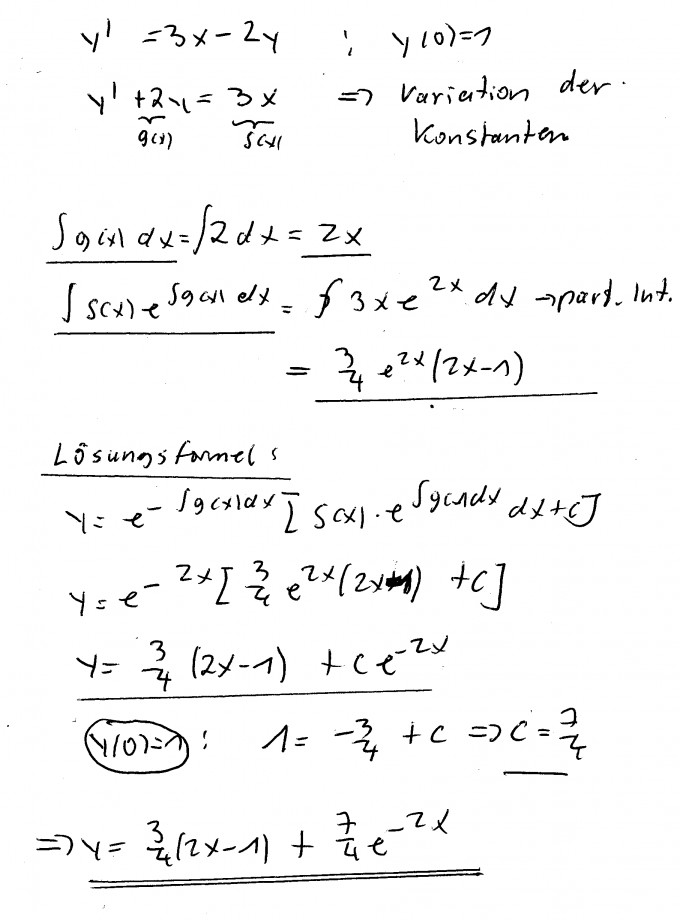 y' = 3x - 2y ; y(0)=1
y' + 2y = 3x => Variation der
g(x) S(x) Konstanten
∫g(x) dx = ∫2dx = 2x
∫S(x) e^{∫g(x) dx} = ∮ 3x e^{2x} dx → part. Int.
= 3/4 e^{2x} (2x-1)
Lösungsformel :
y = e^{-∫g(x)dx} [ S(x) · e^{∫g(x)dx} dx + C ]
y = e^{-2x} [ 3/4 e^{2x} (2x-1) + C ]
y = 3/4 (2x-1) + C e^{-2x}
y(0)=1 : 1 = -3/4 + C => C = 7/4
=> y = 3/4 (2x-1) + 7/4 e^{-2x}